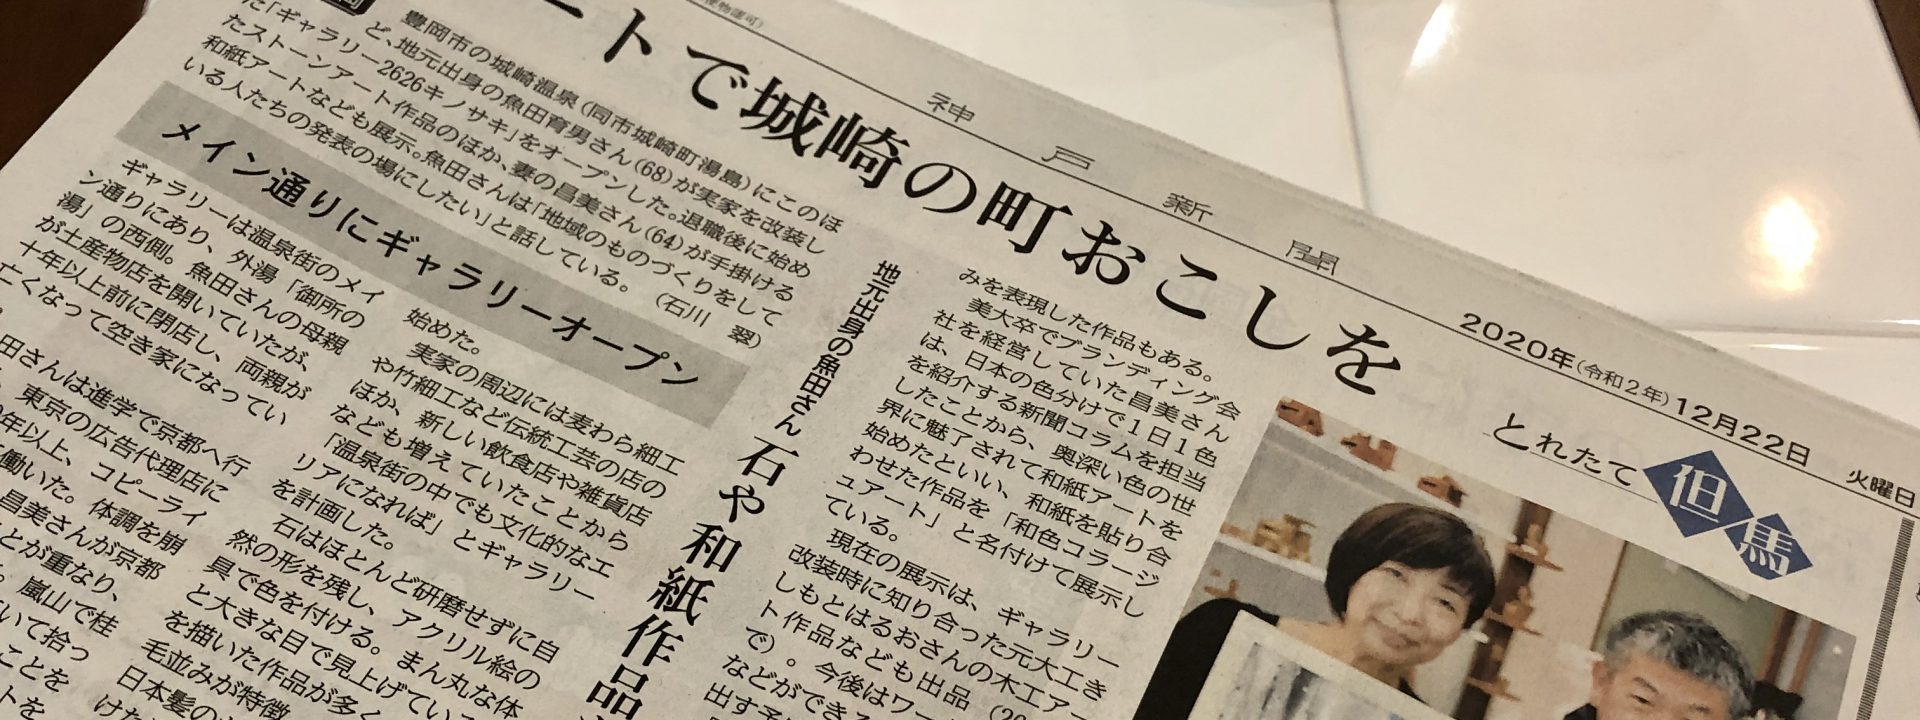 物認可)
神戸新聞
2020年(令和2年)12月22日 火曜日
とれたて
但馬
ートで城崎の町おこしを
豊岡市の城崎温泉(同市城崎町湯島)にこのほ
ど、地元出身の魚田育男さん(68)が実家を改装し
た「ギャラリー2626キノサキ」をオープンした。退職後に始め
たストーンアート作品のほか、妻の昌美さん(64)が手掛ける
和紙アートなども展示。魚田さんは「地域のものづくりをして
いる人たちの発表の場にしたい」と話している。(石川 翠)
メイン通りにギャラリーオープン
地元出身の魚田さん
石や和紙作品
ギャラリーは温泉街のメイ
ン通りにあり、外湯「御所の
湯」の西側。魚田さんの母親
が土産物店を開いていたが、
十年以上前に閉店し、両親が
亡くなって空き家になってい
田さんは進学で京都へ行
、東京の広告代理店に
年以上、コピーライ
働いた。体調を崩
昌美さんが京都
とが重なり、
。嵐山で桂
いて拾っ
ことを
トを
始めた。
実家の周辺には麦わら細工
や竹細工など伝統工芸の店の
ほか、新しい飲食店や雑貨店
なども増えていたことから
「温泉街の中でも文化的なエ
リアになれば」とギャラリー
を計画した。
石はほとんど研磨せずに自
然の形を残し、アクリル絵の
具で色を付ける。まん丸な体
と大きな目で見上げてい
を描いた作品が多く
毛並みが特徴
日本髪の
けた
みを表現した作品もある。
美大卒でブランディング会
社を経営していた昌美さん
は、日本の色分けで1日1色
を紹介する新聞コラムを担当
したことから、奥深い色の世
界に魅了されて和紙アートを
始めたといい、和紙を貼り合
わせた作品を「和色コラージ
ュアート」と名付けて展示し
ている。
現在の展示は、ギャラリー
改装時に知り合った元大工き
しもとはるおさんの木工アー
ト作品なども出品
で)。今後はワー
などができる
出す予